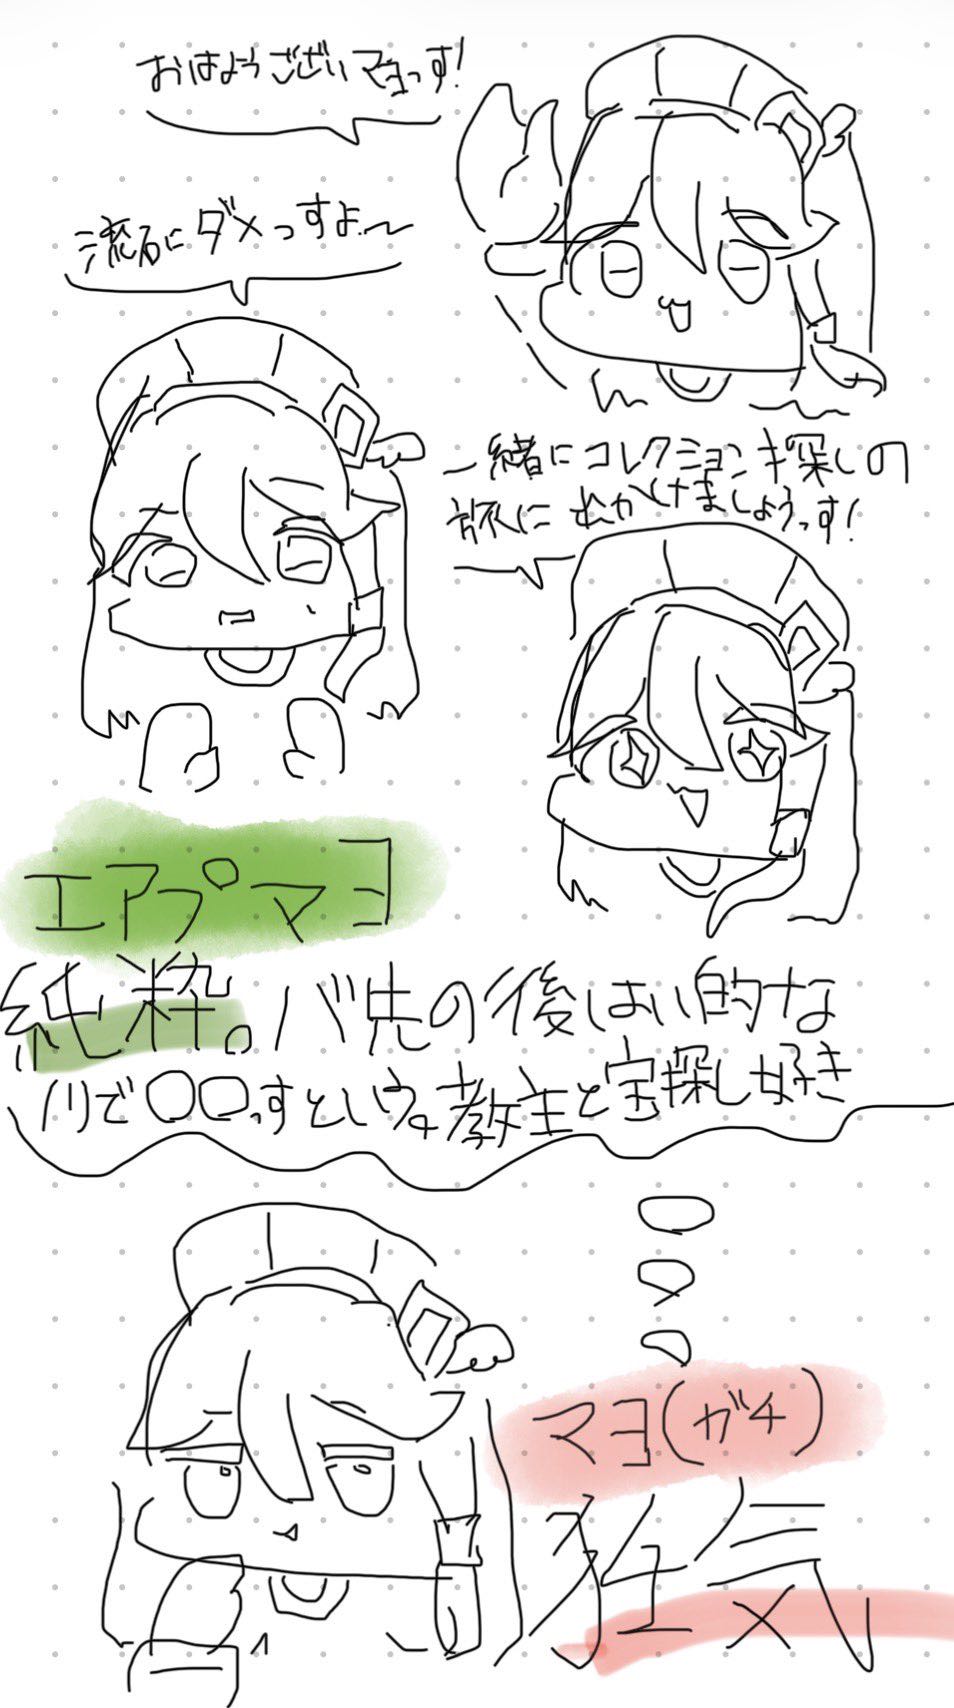 おはようございマヨっす!
流石にダメっすよ〜
一緒にコレクションキ探しの
旅に出かけましょうっす!
エアプマヨ
純粋。バ先の後はい的な
ノリで〇〇っすという。教主と宝探し好き
マヨ(ガチ)
狂気